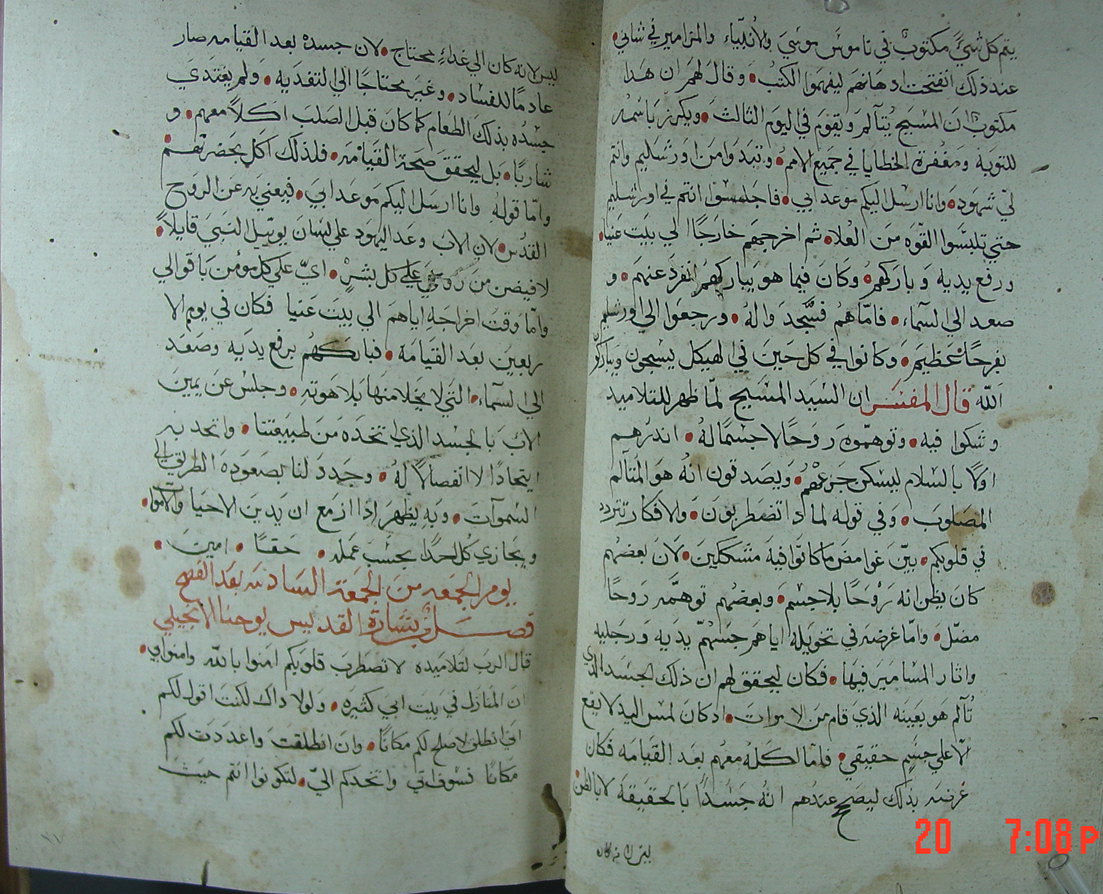 يتم كل شيء مكتوب في ناموس موسى والانبياء والمزامير في شاني
عند ذلك انفتحت اذهانهم ليفهموا الكتب وقال لهم ان هذا
مكتوب ان المسيح يتألم ويقوم في اليوم الثالث ويكرز باسمه
للتوبه ومغفرة الخطايا في جميع الامم وتبدوا من اورشليم وانتم
لي شهود وانا ارسل اليكم موعد ابي فاجلسوا انتم في اورشليم
حتى تلبسوا القوه من العلاء ثم اخرجهم خارجًا الى بيت عنيا
ورفع يديه وباركهم وكان فيما هو يباركهم انفرد عنهم و
صعد الى السماء فاماهم فسجدوا له ورجعوا الى اورشليم
بفرح عظيم وكانوا في كل حين في الهيكل يسبحون ويباركو
الله قال المفسر ان السيد المسيح لما ظهر للتلاميد
وشكوا فيه وتوهموه روحًا لا جسمًا له اندرهم
اولا بالسلام ليسكن جزعهم ويصدقون انه هو المتألم
المصلوب وفي قوله لمادا تضطربون والافكار تتردد
في قلوبكم بيّن غوامض ما كانوا فيه متشككين لان بعضهم
كان يظن انه روحًا بلا جسم وبعضهم توهمه روحًا
مضل واما غرضه في تخويله اياهم جسهم يديه ورجليه
واثار المسامير فيها فكان ليحقق لهم ان ذلك الجسد الذي
تألم هو بعينه الذي قام من الاموات اد كان لمس اليد لا يقع
الا على جسم حقيقي فاما اكله معهم بعد القيامه فكان
غرضه بذلك ليصح عندهم انه جسدًا بالحقيقة لا بالظن
ليس لانه كان
ليس لانه كان الى غداء محتاج لان جسده بعد القيامه صار
عادمًا للفساد وغير محتاجًا الى التغديه ولم يغتدي
جسده بذلك الطعام كما كان قبل الصلب اكلًا معهم و
شاربًا بل ليحقق صحة القيامه فلذلك اكل بحضرتهم
واما قوله وانا ارسل اليكم موعد ابي فيعني به عن الروح
القدس لان الاب وعد اليهود على لسان يوئيل النبي قايلًا
لافيضن من روحي على كل بشر اي على كل مومن باقوالي
واما وقت اخراجه اياهم الى بيت عنيا فكان في يوم الا
ربعين بعد القيامة فباركهم برفع يديه وصعد
الى السماء التي لا يخلا منها بلاهوته وجلس عن يمين
الاب بالجسد الذي اتخده من طبيعتنا واتحد به
اتحادًا لا انفصالًا له وجدد لنا بصعوده الطريق الى
السموات وبه يظهر ادا ازمع ان يدين الاحيا والاموات
ويجازي كل احدًا بحسب عمله حقًا امين
يوم الجمعه من الجمعه السادسه بعد الفصح
فصل من بشارة القديس يوحنا الانجيلي
قال الرب لتلاميده لا تضطرب قلوبكم امنوا بالله وامنوا بي
ان المنازل في بيت ابي كثيره ولولا داك لكنت اقول لكم
اني انطلق لاصلح لكم مكانًا وان انطلقت واعددت لكم
مكانًا فسوف اتي واتخدكم الي لتكونوا انتم حيث
20 7:08 P